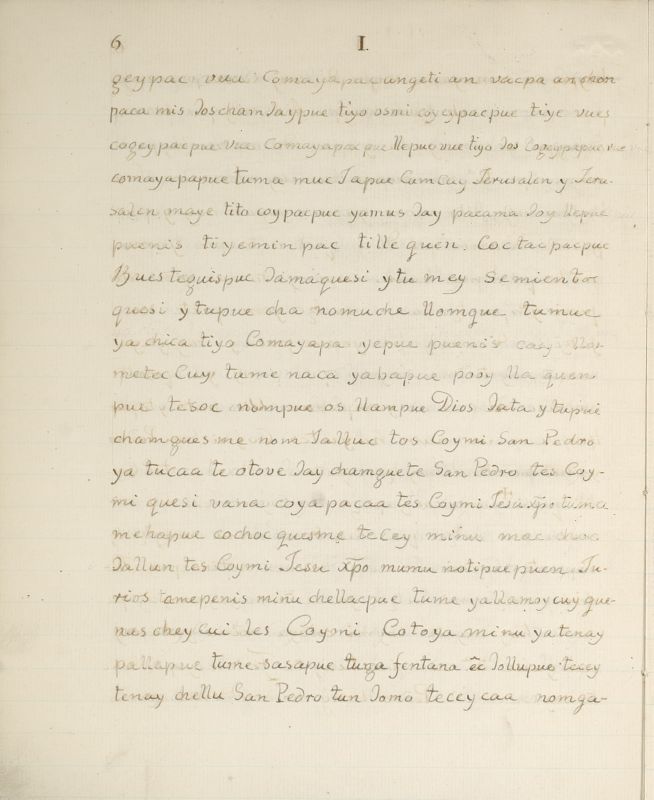 6 I.
gey pac vua Comayapacungeti an vacpa anchon
paca mis Joscham Jaypue tiyo osmi coycypacpue tiyc vues
cogey pacpue vua Comayapac pue llepue vue tiyo Jos
comayapapue tuma muc Japue Cumcuy Jerusalen y Jeru-
salen maye tito coypacpue yamus Jay pacama Joy llepue
puenis tiyeminpac tillequen. Coctacpacpue
Buesteguispue Jamaquesi ytu mey Semientoc
quesi ytupue cha nomuche llomque tumuc
ya chica tiyo Comayapa yepue puenis cacy
metec Cuy tume naca yabapue pooy lla quen
pue tesoc nompue os llampue Dios Jata y tupue
chamgues me nom Jalluc tos Coymi San Pedro
ya tucaa te otove Jay chamguete San Pedro tes Coy-
mi quesi vana coya pacaa tes Coymi Jesu xp̃o tuma
mehapue cochoc quesme tecey minu mac
Jallun tes Coymi Jesu xp̃o mumu notipue puen Ju-
rios tamepenis minu chellacpue tume yallamoy cuy gue-
nas chey cui les Coymi Cotoya minu yatenay
pallapue tume sasapue tunga fentana ẽc Jollupue tecey
tenay chellu San Pedro tun Jomo teceycaa nomga-